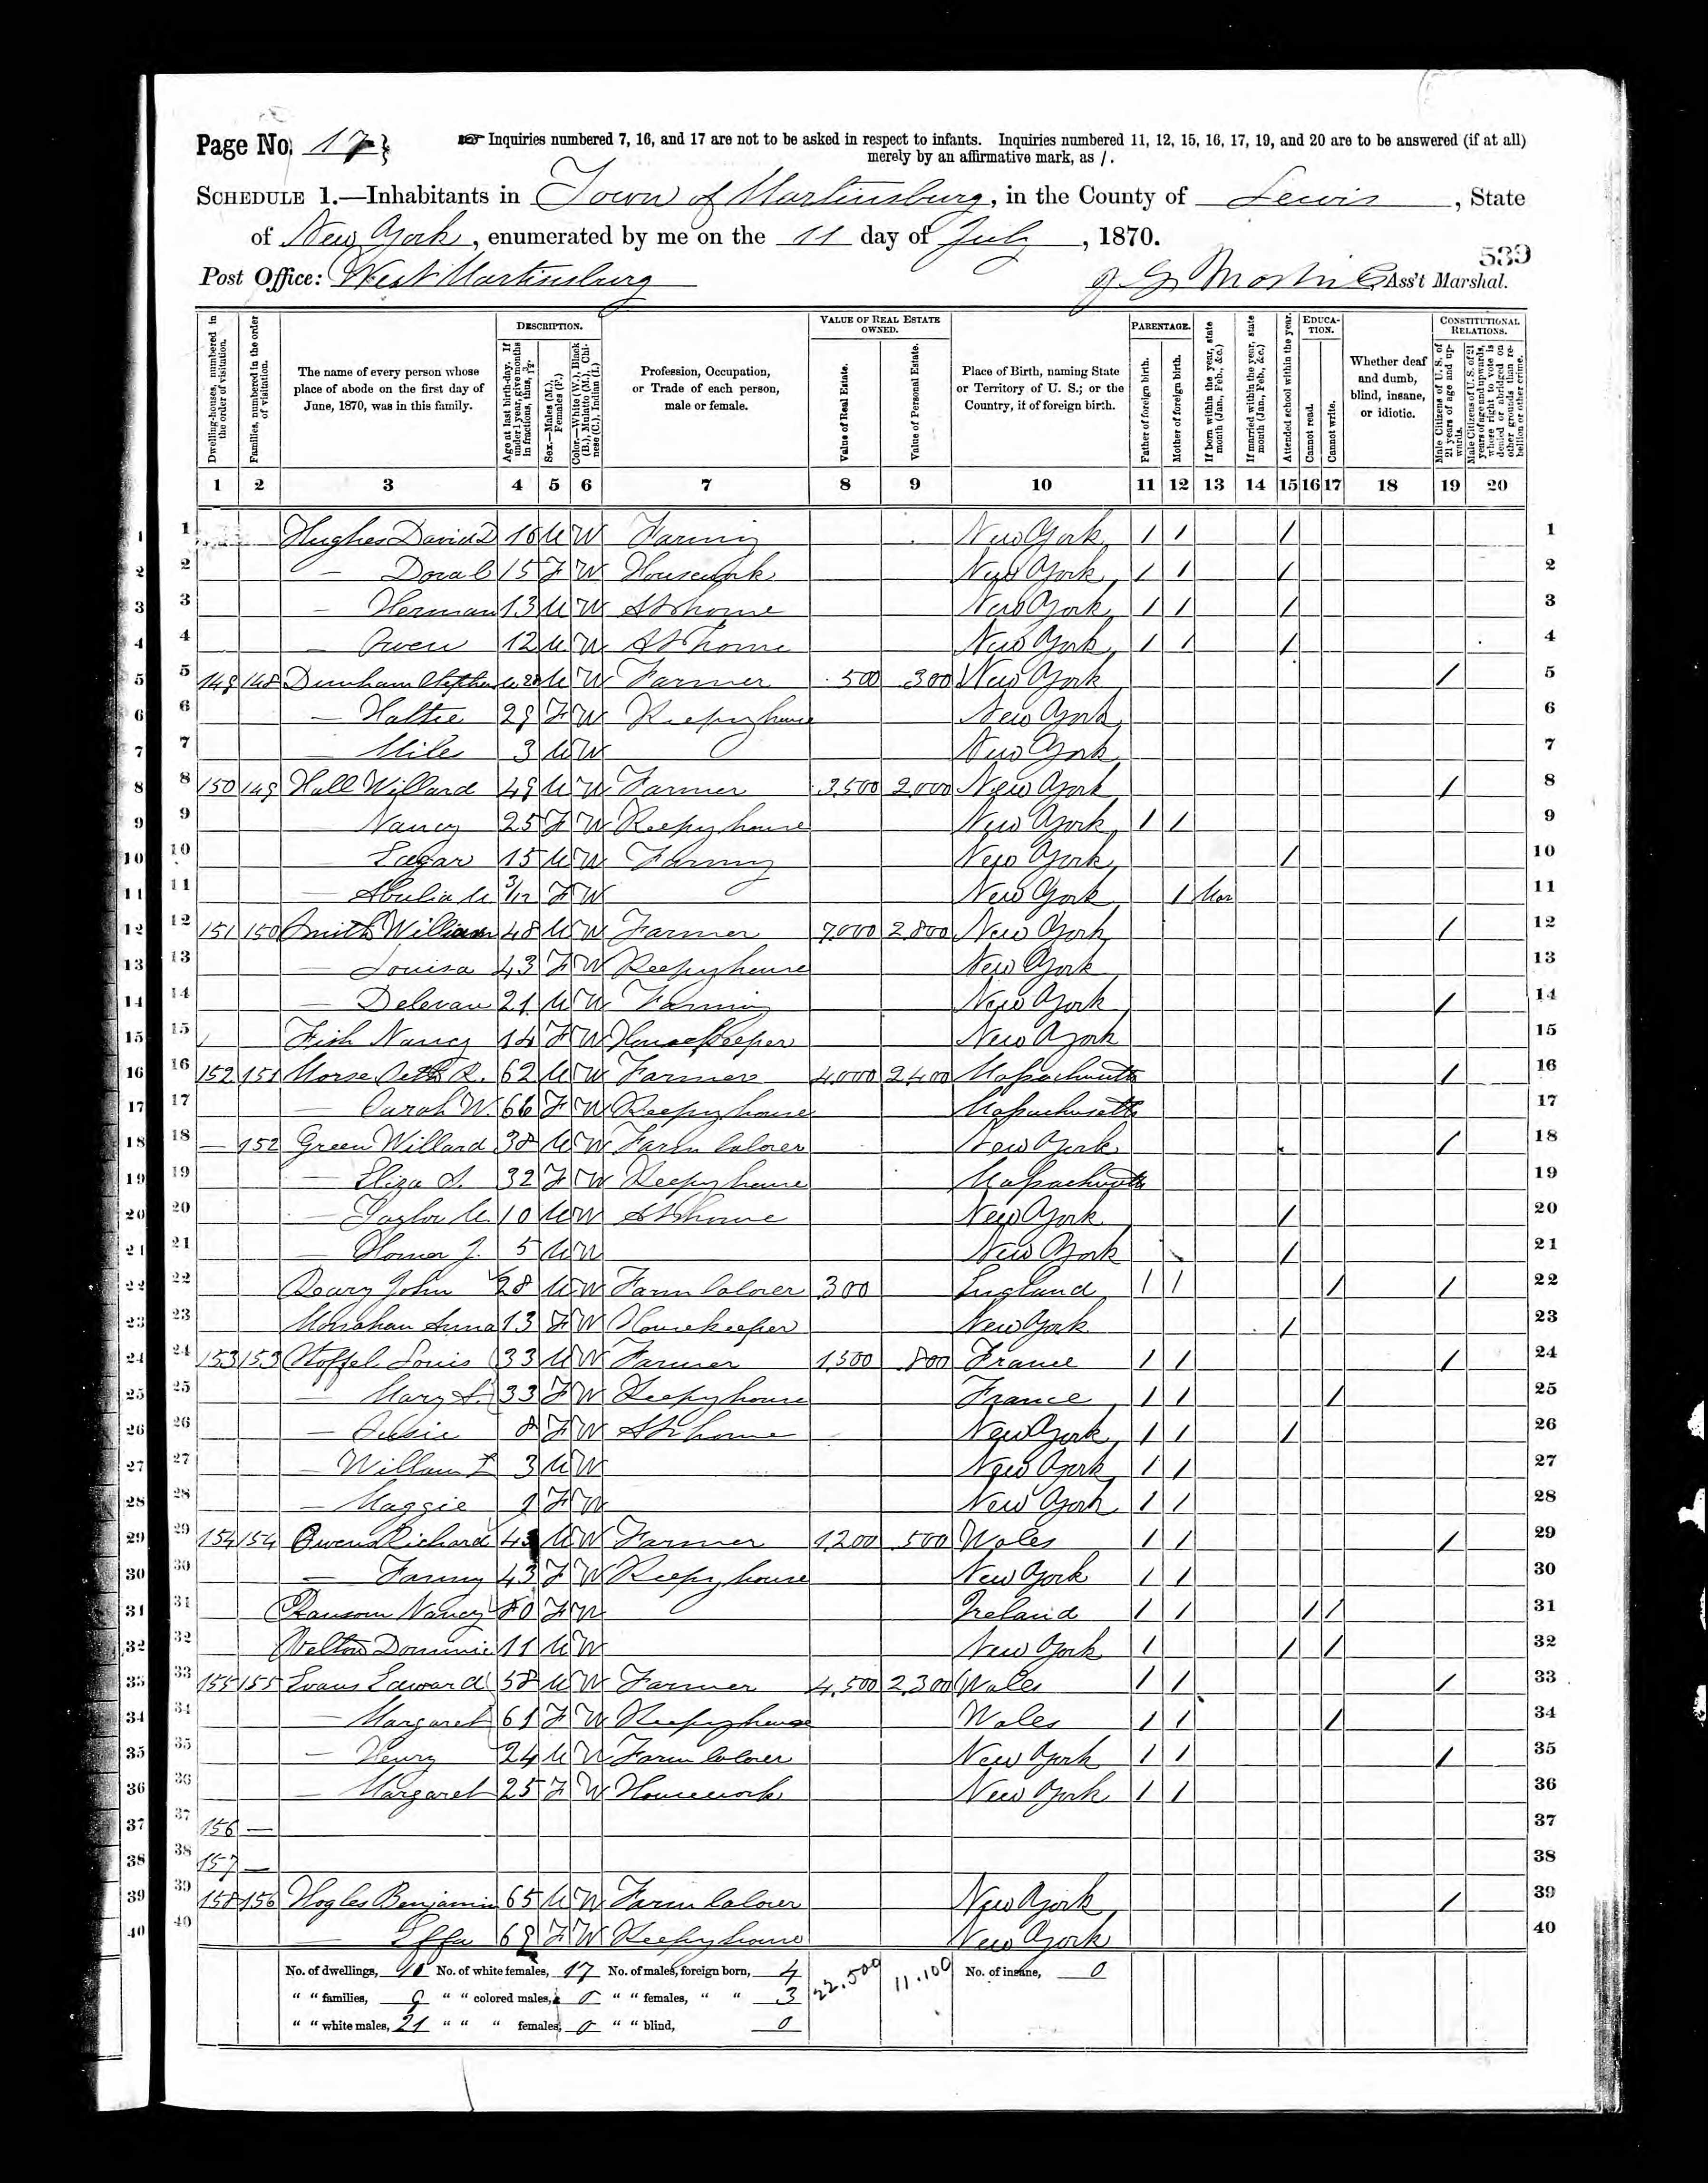 Page No. 17 ☞ Inquiries numbered 7, 16, and 17 are not to be asked in respect to infants. Inquiries numbered 11, 12, 15, 16, 17, 19, and 20 are to be answered (if at all)
merely by an affirmative mark, as /.
SCHEDULE 1.—Inhabitants in Town of Martinsburg, in the County of Lewis, State
of New York, enumerated by me on the 11 day of July, 1870.
539
Post Office: West Martinsburg Ass't Marshal.
Dwelling-houses, numbered in the order of visitation.
Families, numbered in the order of visitation.
The name of every person whose place of abode on the first day of June, 1870, was in this family.
DESCRIPTION.
Age at last birth-day. If under 1 year, give months in fractions, thus, 3/12.
Sex.—Males (M.), Females (F.)
Color.—White (W.), Black (B.), Mulatto (M.), Chinese (C.), Indian (I.)
Profession, Occupation, or Trade of each person, male or female.
VALUE OF REAL ESTATE OWNED.
Value of Real Estate.
Value of Personal Estate.
Place of Birth, naming State or Territory of U. S.; or the Country, if of foreign birth.
PARENTAGE.
Father of foreign birth.
Mother of foreign birth.
If born within the year, state month (Jan., Feb., &c.)
If married within the year, state month (Jan., Feb., &c.)
Attended school within the year.
EDUCATION.
Cannot read.
Cannot write.
Whether deaf and dumb, blind, insane, or idiotic.
CONSTITUTIONAL RELATIONS.
Male Citizens of U. S. of 21 years of age and upwards.
Male Citizens of U. S. of 21 years of age and upwards, whose right to vote is denied or abridged on other grounds than rebellion or other crime.
1 2 3 4 5 6 7 8 9 10 11 12 13 14 15 16 17 18 19 20
1 Hughes David D M W Farming New York / / / 1
2 — Dora C 15 F W Housework New York / / / 2
3 — Herman 13 M W At home New York / / / 3
4 — Owen 12 M W At home New York / / / 4
5 149 148 Dunham Stephen M W Farmer 500 300 New York / 5
6 — Hattie 29 F W Keepg house New York 6
7 — Mile 3 M W New York 7
8 150 149 Hall Willard 49 M W Farmer 3,500 2,000 New York / 8
9 Nancy 25 F W Keepg house New York / / 9
10 Edgar 15 M W Farming New York / 10
11 — 3/12 F W New York / Mar 11
12 151 150 Smith William 48 M W Farmer 7,000 2,800 New York / 12
13 — Louisa 43 F W Keepg house New York 13
14 — Delevan 21 M W Farming New York / 14
15 Fish Nancy 14 F W Housekeeper New York 15
16 152 151 Morse Seth R. 62 M W Farmer 4,000 2400 Massachusetts / 16
17 — Sarah W. 66 F W Keepg house Massachusetts 17
18 — 152 Green Willard 38 M W Farm laborer New York / 18
19 — Eliza S. 32 F W Keepg house Massachusetts 19
20 — Taylor M. 10 M W At home New York / 20
21 — Homer J. 5 M W New York / 21
22 John 28 M W Farm laborer 300 England / / / / 22
23 Monahan Anna 13 F W Housekeeper New York / 23
24 153 153 Stoffel Louis 33 M W Farmer 1,500 800 France / / / 24
25 — Mary S. 33 F W Keepg house France / / / 25
26 — 8 F W At home New York / / / 26
27 — William L 3 M W New York / / 27
28 — Maggie 1 F W New York / / 28
29 154 154 Owens Richard M W Farmer 1,200 500 Wales / / / 29
30 — Fanny 43 F W Keepg house New York / / 30
31 Ransom Nancy 80 F W Ireland / / / / 31
32 Dominic 11 M W New York / / / 32
33 155 155 Evans Edward 58 M W Farmer 4,500 2,300 Wales / / / 33
34 — Margaret 61 F W Keepg house Wales / / / 34
35 — Henry 24 M W Farm laborer New York / / / 35
36 — Margaret 25 F W Housework New York / / 36
37 156 — 37
38 157 — 38
39 158 156 Hogles Benjamin 65 M W Farm laborer New York / 39
40 — Effa 69 F W Keepg house New York 40
No. of dwellings, 10 No. of white females, 17 No. of males, foreign born, 4 22.500 11.100 No. of insane, 0
" " families, 9 " " colored males, 0 " " females, " " 3
" " white males, 21 " " " females, 0 " " blind, 0